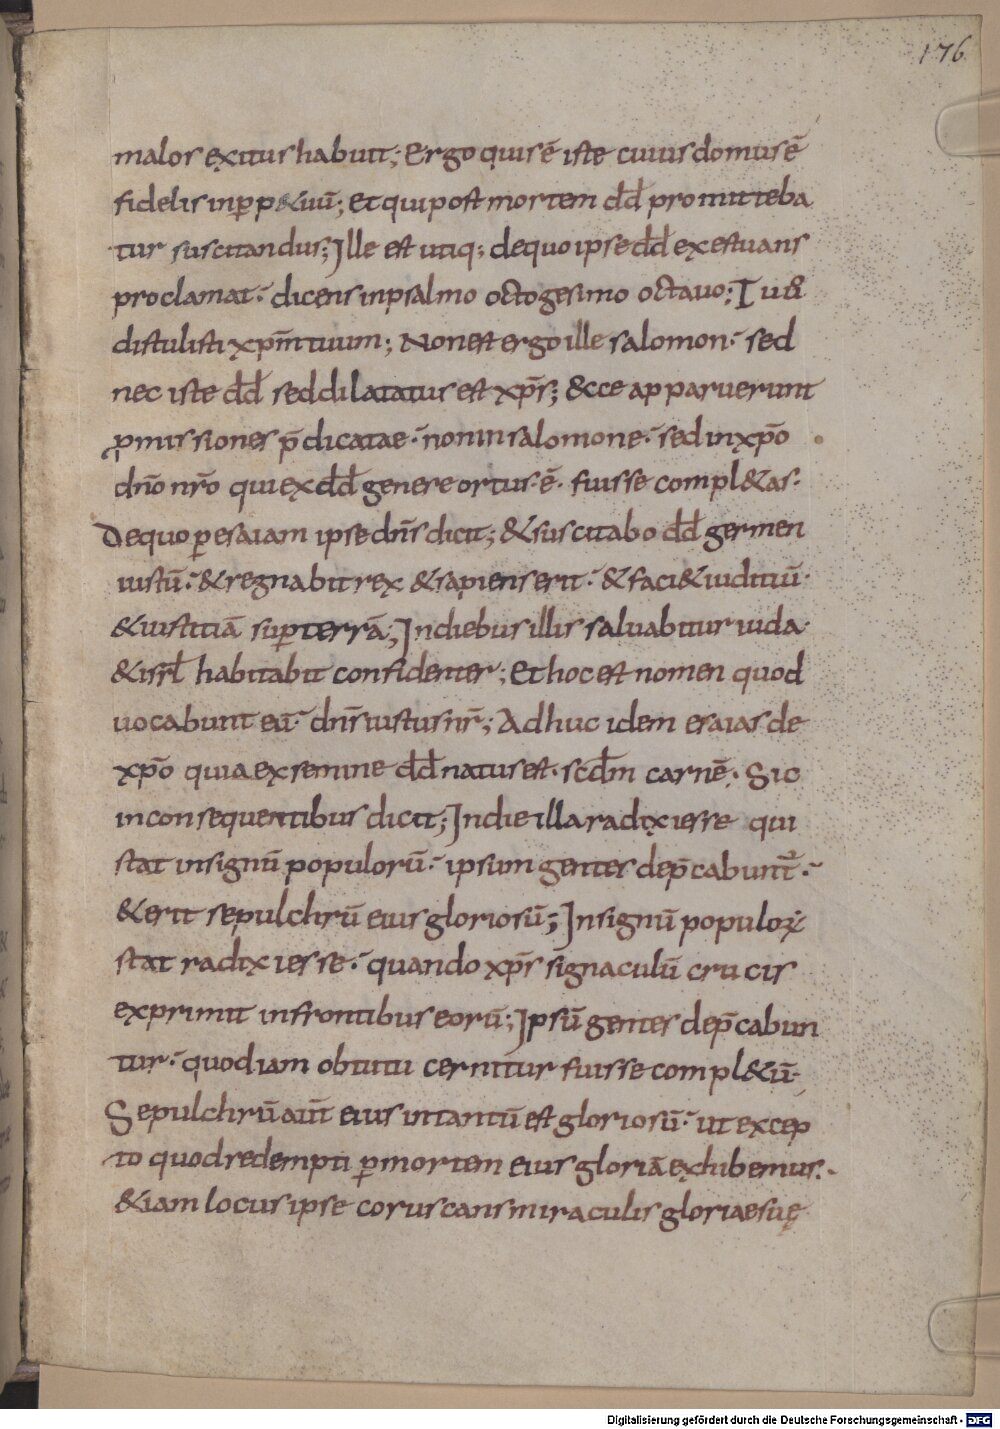 176
malos exitus habuit; Ergo quis ē iste cuius domus ē
fidelis in ꝑp&uū; Et qui post mortem dd̄ promitteba
tur suscitandus; Ille est utiq; de quo ipse dd̄ exestuans
proclamat· dicens in psalmo octogesimo octauo; Tu uº
distulisti xp̄m tuum; Non est ergo ille salomon· sed
nec iste dd̄ sed dilatatus est xp̄s; &cce apparuerunt
ꝓmissiones p̄dicatae· non in salomone· sed in xp̄o
dn̄o nr̄o qui ex dd̄ genere ortus ē· fuisse compl&as·
De quo ꝑ esaiam ipse dn̄s dicit; & suscitabo dd̄ germen
iustū· & regnabit rex & sapiens erit· & faci& iuditiū·
& iustitiā suꝑ terrā; In diebus illis saluabitur iuda·
& isrl̄ habitabit confidenter; Et hoc est nomen quod
uocabunt eū· dn̄s iustus nr̄; Adhuc idem esaias de
xp̄o quia ex semine dd̄ natus est· scd̄m carnē· Sic
in consequentibus dicit; In die illa radix iesse qui
stat in signū populorū· ipsum gentes dep̄cabunt̄·
& erit sepulchrū eius gloriosū; In signū populoꝝ
stat radix iesse· quando xp̄s signaculū crucis
exprimit in frontibus eorū; Ipsū gentes dep̄cabun
tur· quod iam obtutu cernitur fuisse compl&ū·
Sepulchrū aūt eius in tantū est gloriosū· ut excep
to quod redempti ꝑ mortem eius gloriā exhibemus·
& iam locus ipse coruscans miraculis gloriae suę
Digitalisierung gefördert durch die Deutsche Forschungsgemeinschaft - DFG